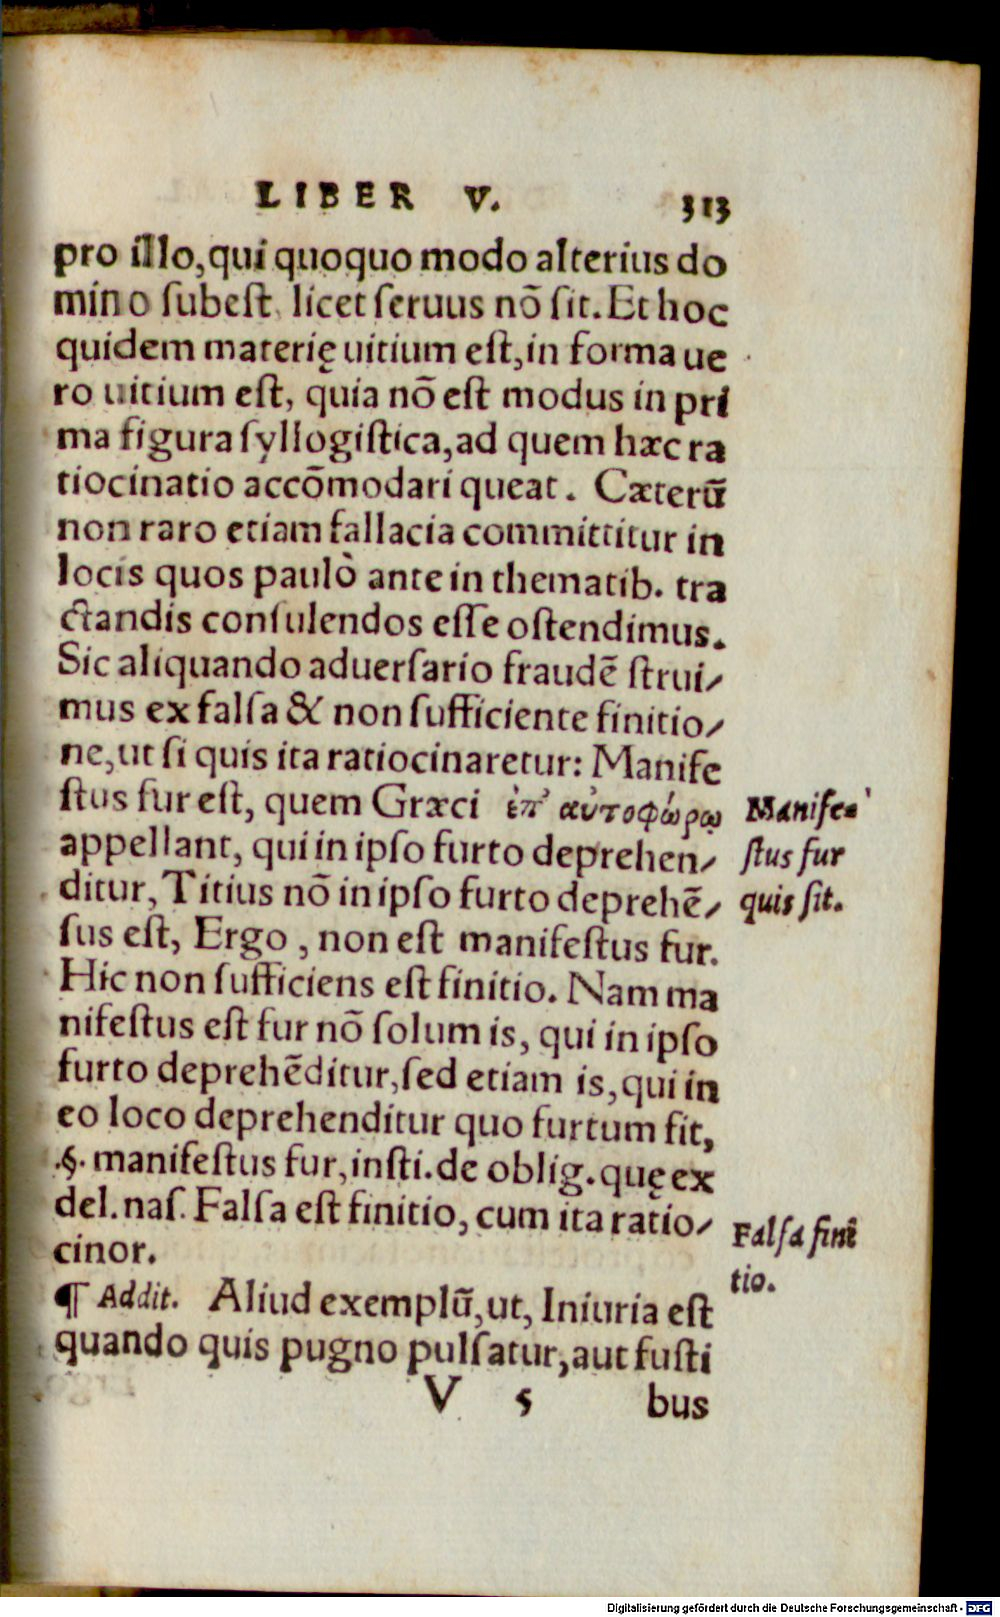 LIBER V. 313
pro illo, qui quoquo modo alterius do
mino ſubeſt, licet ſeruus nō ſit. Et hoc
quidem materię uitium eſt, in forma ue
ro uitium eſt, quia nō eſt modus in pri
ma figura ſyllogiſtica, ad quem hæc ra
tiocinatio accōmodari queat. Cæterū
non raro etiam fallacia committitur in
locis quos paulò ante in thematib. tra
ctandis conſulendos eſſe oſtendimus.
Sic aliquando aduerſario fraudē ſtrui/
mus ex falſa & non ſufficiente finitio/
ne, ut ſi quis ita ratiocinaretur: Manife
ſtus fur eſt, quem Græci ἐπ' αὐτοφώρῳ
appellant, qui in ipſo furto deprehen/
ditur, Titius nō in ipſo furto deprehē/
ſus eſt, Ergo, non eſt manifeſtus fur.
Hic non ſufficiens eſt finitio. Nam ma
nifeſtus eſt fur nō ſolum is, qui in ipſo
furto deprehēditur, ſed etiam is, qui in
eo loco deprehenditur quo furtum fit,
.§. manifeſtus fur, inſti. de oblig. quę ex
del. naſ. Falſa eſt finitio, cum ita ratio/
cinor.
¶ Addit. Aliud exemplū, ut, Iniuria eſt
quando quis pugno pulſatur, aut fuſti
V 5 bus
Manife=
ſtus fur
quis ſit.
Falſa fini
tio.
Digitalisierung gefördert durch die Deutsche Forschungsgemeinschaft - DFG